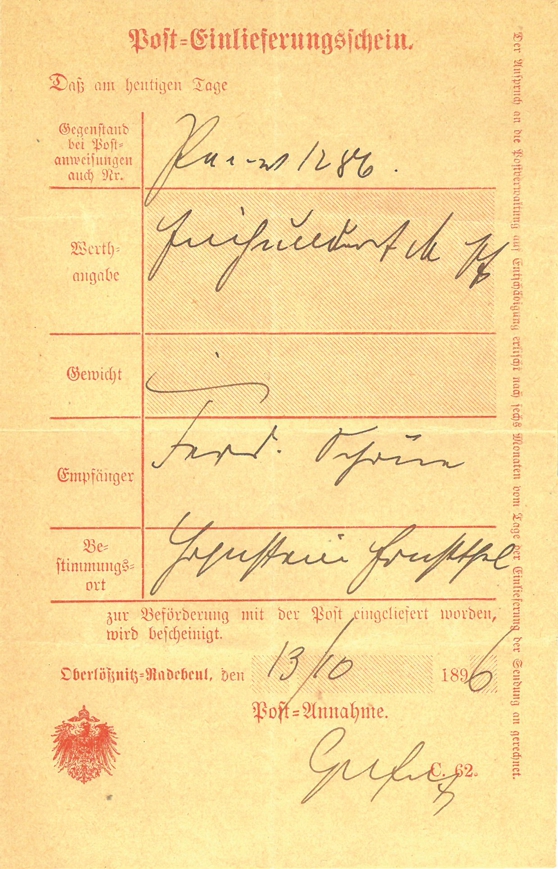 Post-Einlieferungsschein.
Daß am heutigen Tage
Gegenstand
bei Post-
anweisungen
auch Nr.
1286.
Werth-
angabe
M Pf
Gewicht
Empfänger
Ferd. Schöne
Be-
stimmungs-
ort
Hohnstein Ernstthal
zur Beförderung mit der Post eingeliefert worden,
wird bescheinigt.
Oberlößnitz-Radebeul, den 13/10 1896
Post-Annahme.
C. 62.
Der Anspruch an die Postverwaltung auf Entschädigung erlischt nach sechs Monaten vom Tage der Einlieferung der Sendung an gerechnet.